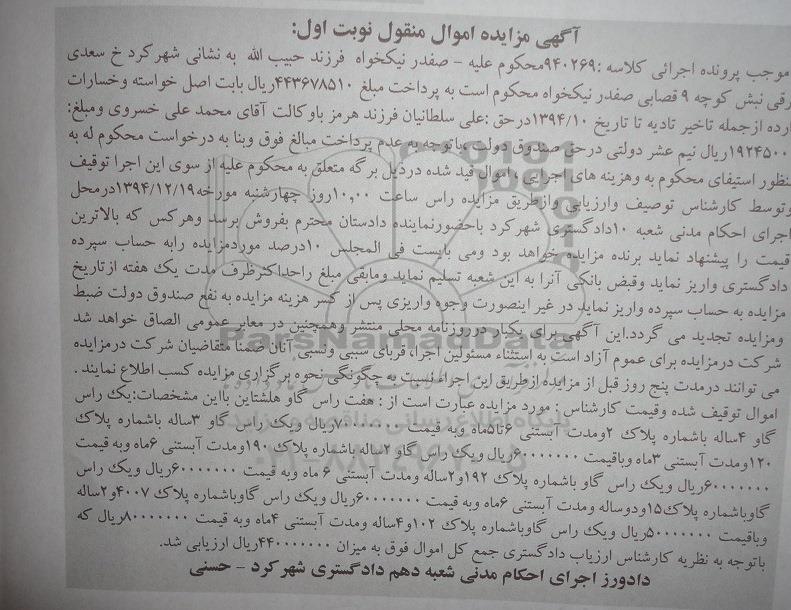 آگهی مزایده اموال منقول نوبت اول:
موجب پرونده اجرائی کلاسه :۹۴۰۲۶۹محکوم علیه - صفدر نیکخواه فرزند حبیب الله به نشانی شهرکرد خ سعدی
رقی نبش کوچه ۹ قصابی صفدر نیکخواه محکوم است به پرداخت مبلغ ۴۴۳۶۷۸۵۱۰ریال بابت اصل خواسته وخسارات
ارده ازجمله تاخیر تادیه تا تاریخ ۱۳۹۴/۱۰درحق :علی سلطانیان فرزند هرمز باوکالت آقای محمد علی خسروی ومبلغ:
۱۹۲۴۵۰۰ریال نیم عشر دولتی درحق صندوق دولت .باتوجه به عدم پرداخت مبالغ فوق وبنا به درخواست محکوم له به
نظور استیفای محکوم به وهزینه های اجرایی ، اموال قید شده درذیل برگه متعلق به محکوم علیه از سوی این اجرا توقیف
وتوسط کارشناس توصیف وارزیابی وازطریق مزایده راس ساعت ۱۰,۰۰روز چهارشنبه مورخه۱۳۹۴/۱۲/۱۹درمحل
اجرای احکام مدنی شعبه ۱۰دادگستری شهرکرد باحضورنماینده دادستان محترم بفروش برسد وهرکس که بالاترین
قیمت را پیشنهاد نماید برنده مزایده خواهد بود ومی بایست فی المجلس ۱۰درصد موردمزایده رابه حساب سپرده
دادگستری واریز نماید وقبض بانکی آنرا به این شعبه تسلیم نماید ومابقی مبلغ راحداکثرظرف مدت یک هفته ازتاریخ
مزایده به حساب سپرده واریز نماید در غیر اینصورت وجوه واریزی پس از کسر هزینه مزایده به نفع صندوق دولت ضبط
ومزایده تجدید می گردد.این آگهی برای یکبار درروزنامه محلی منتشر وهمچنین در معابر عمومی الصاق خواهد شد
شرکت درمزایده برای عموم آزاد است به استثناء مسئولین اجرا، قربای سببی ونسبی آنان ضمنا متقاضیان شرکت درمزایده
می توانند درمدت پنج روز قبل از مزایده ازطریق این اجراء نسبت به چگونگی نحوه برگزاری مزایده کسب اطلاع نمایند .
اموال توقیف شده وقیمت کارشناس : مورد مزایده عبارت است از : هفت راس گاو هلشتاین بااین مشخصات:یک راس
گاو ۴ساله باشماره پلاک ۲ومدت آبستنی ۶تا۵ماه وبه قیمت ۷۰۰۰۰۰۰۰ریال ویک راس گاو ۳ساله باشماره پلاک
۱۲۰ومدت آبستنی ۳ماه وباقیمت ۶۰۰۰۰۰۰۰ریال ویک راس گاو ۲ساله باشماره پلاک ۱۹۰ومدت آبستنی ۶ماه وبه قیمت
۶۰۰۰۰۰۰۰ریال ویک راس گاو باشماره پلاک ۱۹۲و۲ساله ومدت آبستنی ۶ ماه وبه قیمت ۶۰۰۰۰۰۰۰ریال ویک راس
گاوباشماره پلاک۱۵ودوساله ومدت آبستنی ۶ماه وبه قیمت ۶۰۰۰۰۰۰۰ریال ویک راس گاوباشماره پلاک ۴۰۰۷و۲ساله
وباقیمت ۵۰۰۰۰۰۰۰ریال ویک راس گاوباشماره پلاک ۱۰۲و۴ساله ومدت آبستنی ۴ماه وبه قیمت ۸۰۰۰۰۰۰۰ریال که
باتوجه به نظریه کارشناس ارزیاب دادگستری جمع کل اموال فوق به میزان ۴۴۰۰۰۰۰۰۰ریال ارزیابی شد.
دادورز اجرای احکام مدنی شعبه دهم دادگستری شهرکرد - حسنی
ParsNamadData